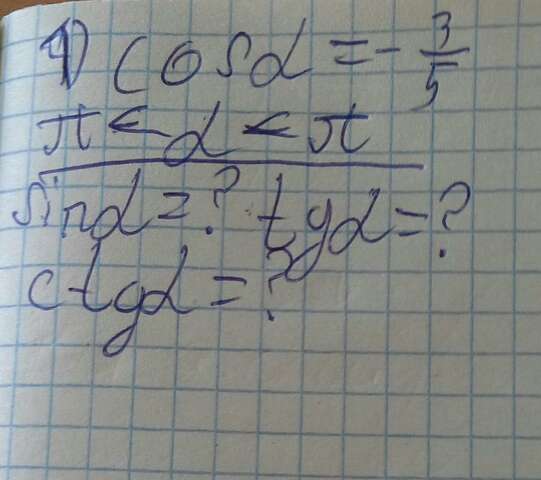 1) cosα = - 3/5
π < α < π
sinα = ? tgα = ?
ctgα = ?